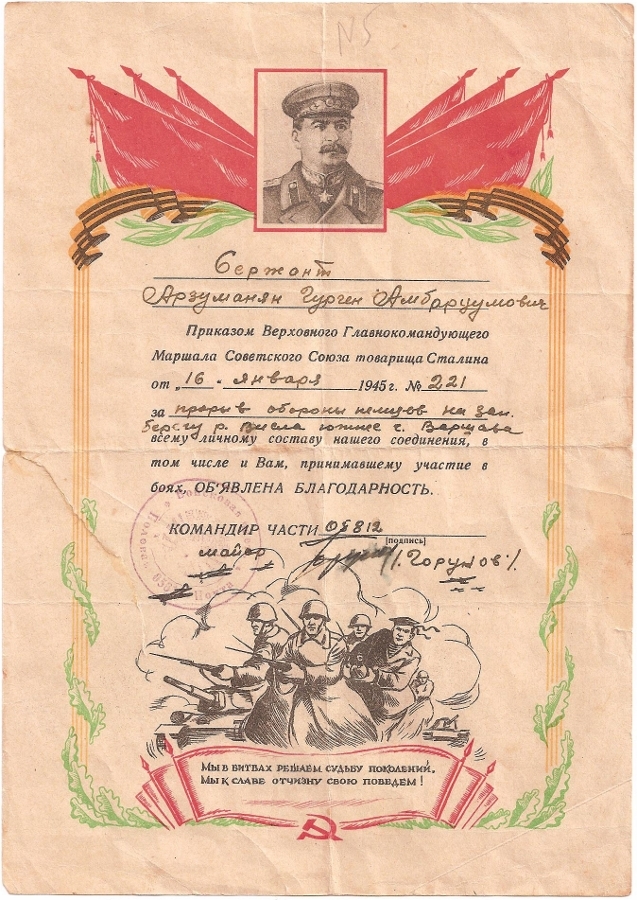 N5.
Сержант
Арзуманян Гурген Амбарцумович
Приказом Верховного Главнокомандующего
Маршала Советского Союза товарища Сталина
от „16 - января 1945 г. № 221
за прорыв обороны немцов на зап.
берегу р. Висла южнее г. Варшава
всему личному составу нашего соединения, в
том числе и Вам, принимавшему участие в
боях, ОБ'ЯВЛЕНА БЛАГОДАРНОСТЬ.
КОМАНДИР ЧАСТИ 05812
[подпись]
майор /. Горунов /.
Войсковая
Полевая
Почта
МЫ В БИТВАХ РЕШАЕМ СУДЬБУ ПОКОЛЕНИЙ,
МЫ К СЛАВЕ ОТЧИЗНУ СВОЮ ПОВЕДЕМ!